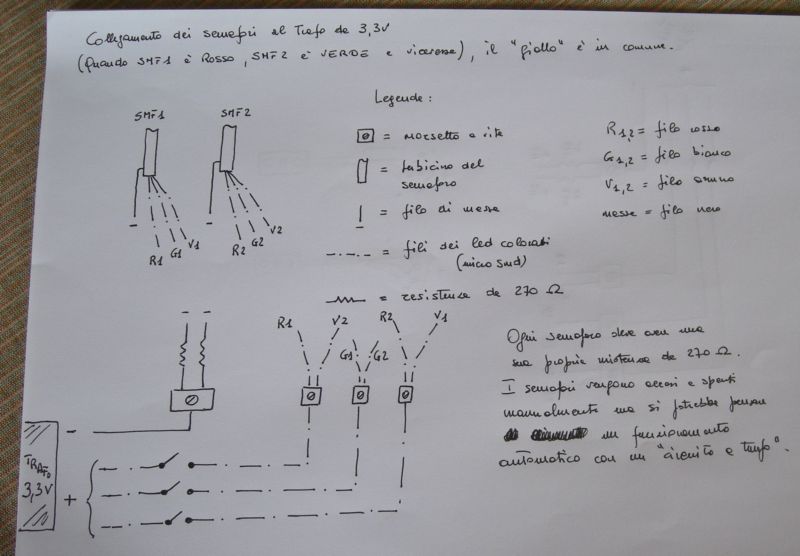 Collegamento dei semafori al Trafo da 3,3V
(Quando SMF1 è Rosso, SMF2 è VERDE e viceversa), il "giallo" è in comune.
Legenda:
SMF1
SMF2
= morsetto a vite
= tubicino del
semaforo
= filo di massa
= fili dei led colorati
(micro smd)
= resistenza da 270 Ω
R1,2 = filo rosso
G1,2 = filo bianco
V1,2 = filo
massa = filo nero
R1 G1 V1
R2 G2 V2
R1 V2 R2 V1
G1 G2
Ogni semaforo deve aver una
sua propria resistenza da 270 Ω.
I semafori vengono accesi e spenti
manualmente ma si potrebbe pensare
un funzionamento
automatico con un "circuito a tempo".
TRAFO
3,3V
-
+